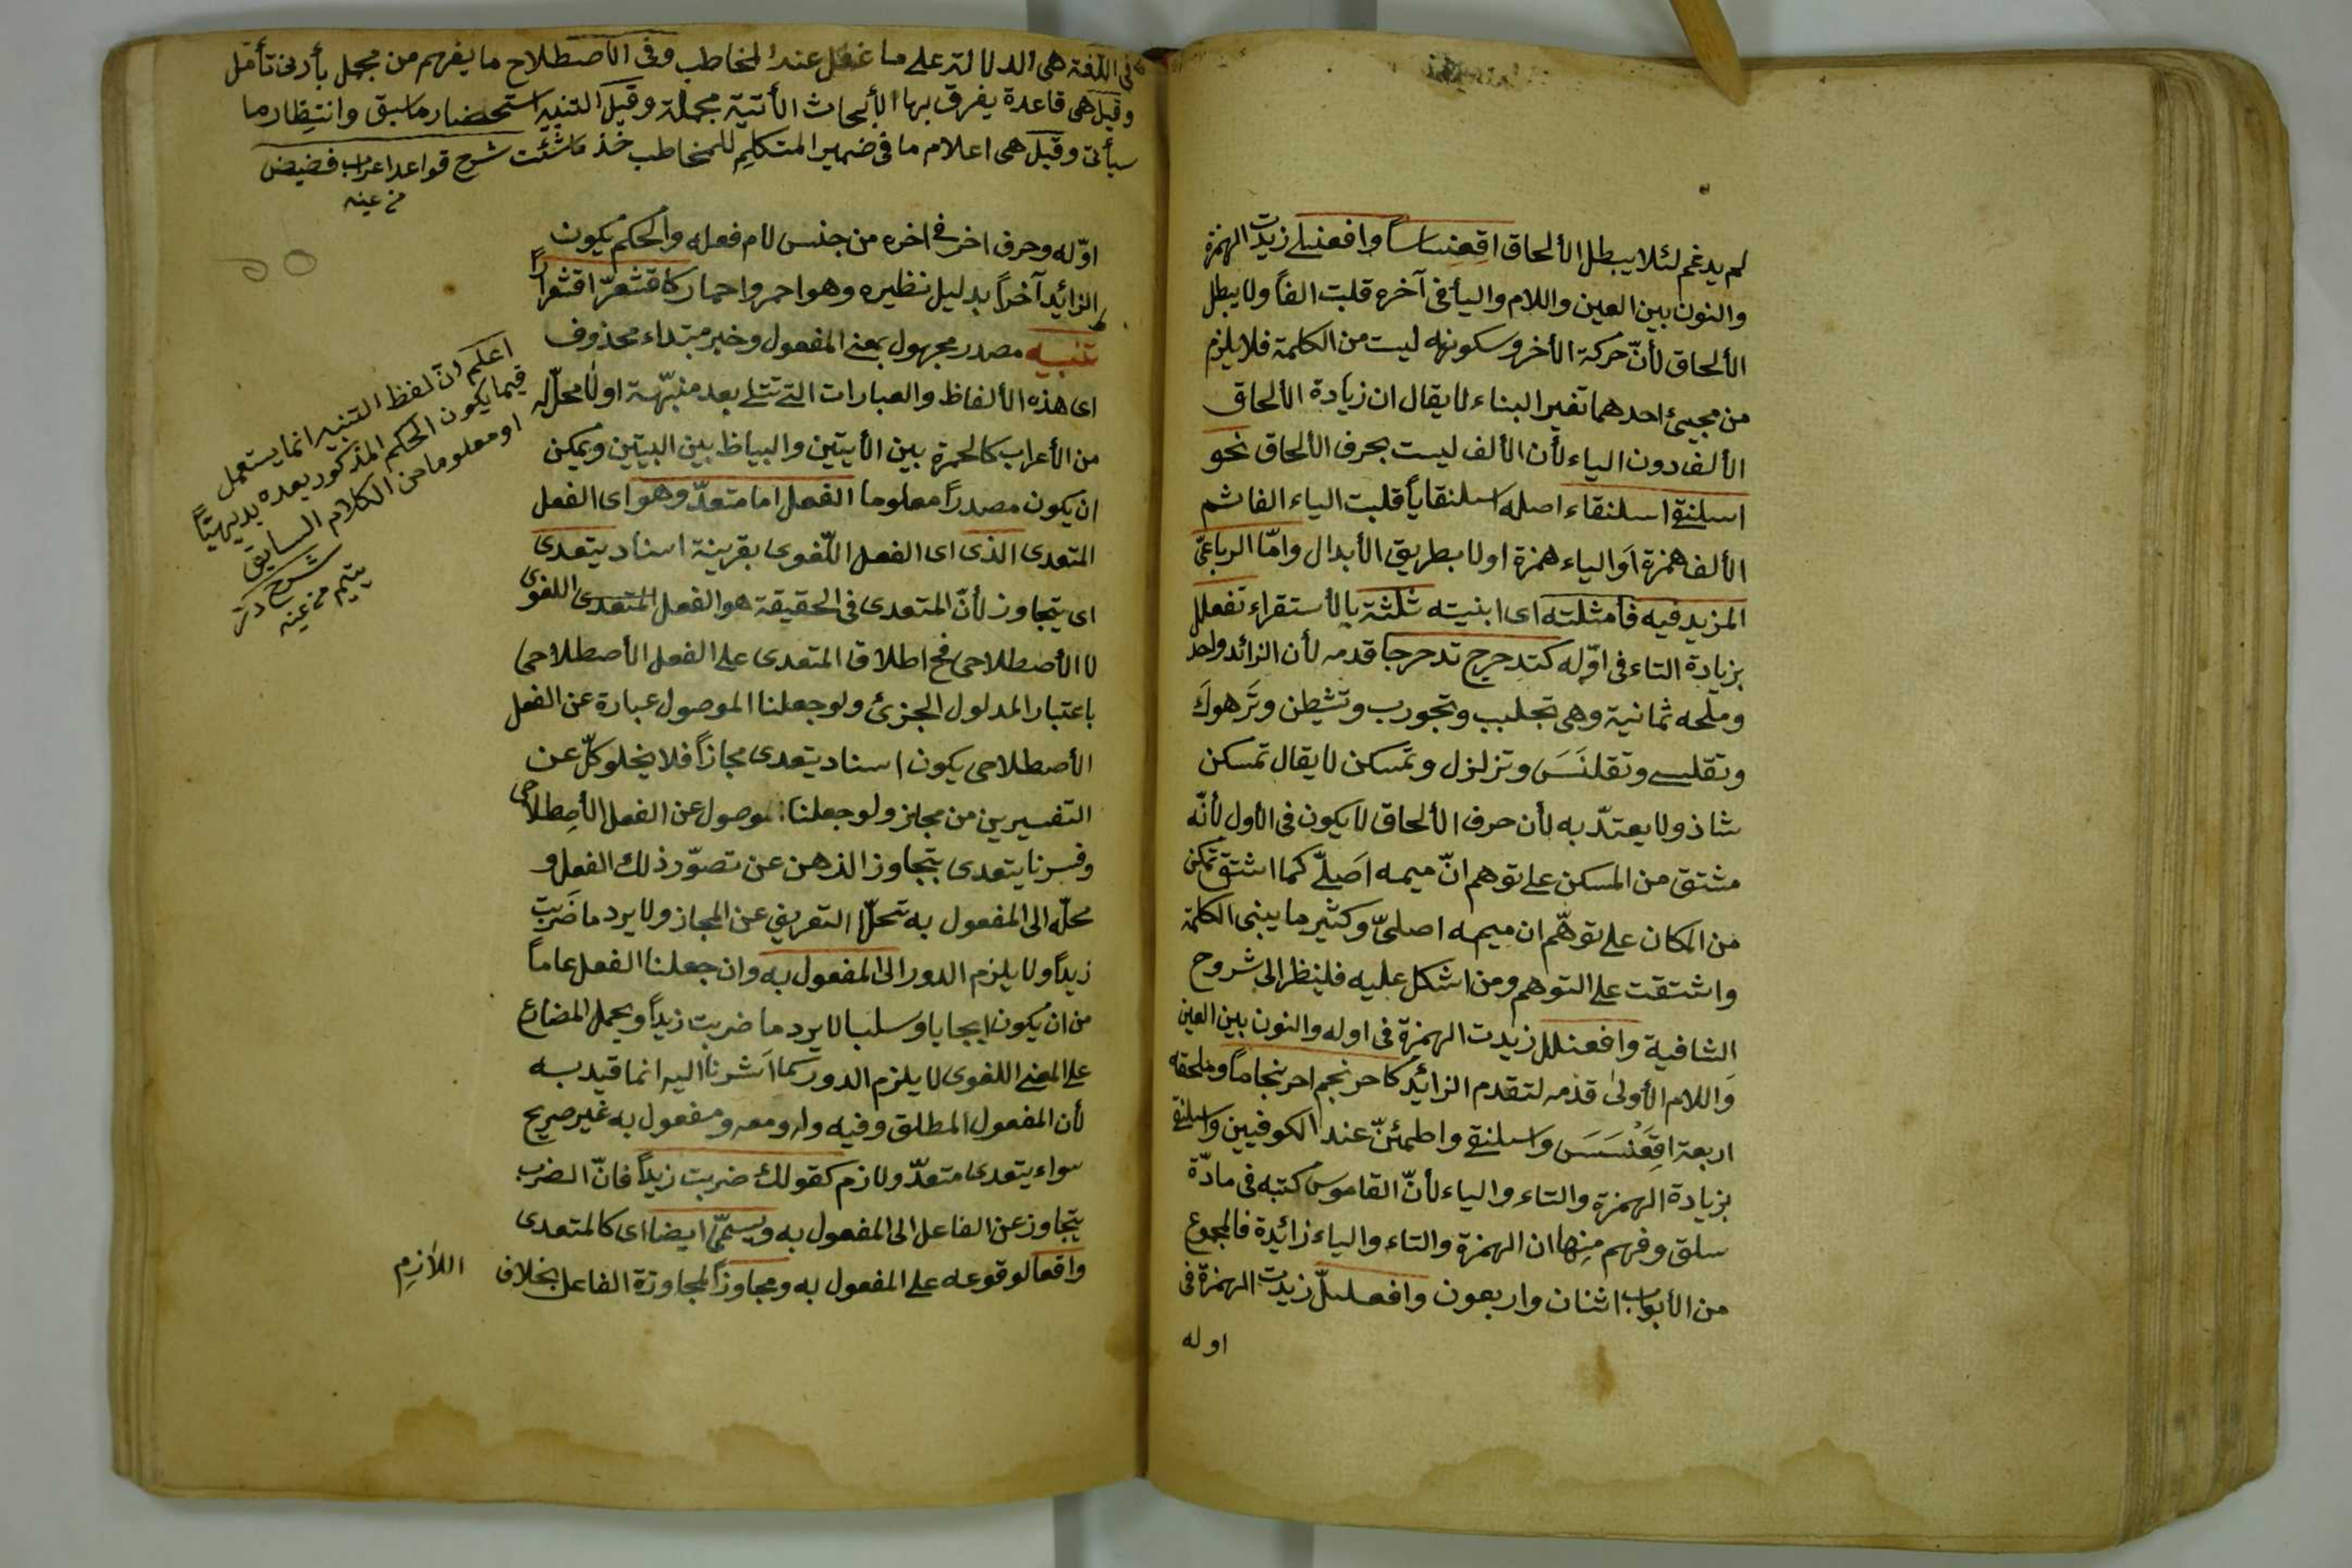 لم يدغم لئلا يبطل الألحاق اقعنساساً وافعنلى زيدت الهمزة
والنون بين العين واللام واليأ فى آخره قلبت الفاً ولا يبطل
الألحاق لأنّ حركة الأخر وسكونه ليست من الكلمة فلا يلزم
من مجيئ احدهما تغير البناء لا يقال ان زيادة الألحاق
الألف دون الياء لأن الألف ليست بحرف الألحاق نحو
اسلنقى اسلنقاء اصله اسلنقاياً قلبت الياء الفا ثم
الألف همزة اَو الياء همزة اولا بطريق الأبدال وامّا الرباعىّ
المزيد فيه فأمثلته اى ابنيته ثلثة بالأستقراء تفعلل
بزيادة التاء فى اوّله كتدحرج تدحرجا قدمه لأن الزائد واحد
وملحقه ثمانية وهى تجلبب وتجورب وتشيطن وتَرهوكَ
وتقلسى وتقلنَسَ وتزلزل وتمسكن لا يقال تمسكن
شاذ ولا يعتدّ به لأن حرف الألحاق لا يكون فى الأول لأنّه
مشتق من المسكن على توهم انّ ميمه اَصلىّ كما اشتق تمكن
من المكان على توهّم ان ميمه اصلىّ وكثير ما يبنى الكلمة
واشتقت على التوهم ومن اشكل عليه فلينظر الى شروح
الشافية وافعنلل زيدت الهمزة فى اوله والنون بين العين
وَاللام الأولى قدّمه لتقدم الزائد كاحرنجم احرنجاماً وملحقه
اربعة اقِعَنْسَسَ واسلنقى واطمئنّ عند الكوفيين واسلنقى
بزيادة الهمزة والتاء والياء لأنّ القاموس كتبه فى مادّة
سلق وفهم مِنها ان الهمزة والتاء والياء زائدة فالمجموع
من الأبواب اثنان واربعون وافعلىلّ زيدت الهمزة فى
اوله
فى اللّغة هى الدلالة على ما غفل عنه المخاطب وفى الأصطلاح ما يفهم من مجمل بأدنى تأمّل
وقيل هى قاعدة يفرق بها الأبحاث الأتية مجملة وقيل التنبيه استحضار ما سبق وانتظار ما
سيأتى وقيل هى اعلام ما فى ضمير المتكلِمِ للمخاطب خذ ما شئت شرح قواعد اعراب
من عينه
اوّله وحرف اخر فى اخره من جنس لام فعله والحكم يكون
الزائد آخراً بدليل نظيره وهو احمر واحمار كاقشعرّ اقشعراراً
تنبيه مصدر مجهول بمعنى المفعول وخبر مبتداء محذوف
اى هذه الألفاظ والعبارات التى تتلى بعد منبّهة او لا محلّ له
من الأعراب كالحمرة بين الأيتين والبياظ بين البيتين ويمكن
ان يكون مصدراً معلوما الفعل اما متعدّ وهو اى الفعل
المتعدى الذى اى الفعل اللّغوى بقرينة اسناد يتعدى
اى يتجاوز لأنّ المتعدى فى الحقيقة هو الفعل المتعدى اللغوى
لا الأصطلاحى فح اطلاق المتعدى على الفعل الأصطلاحى
باعتبار المدلول الجزئ ولو جعلنا الموصول عبارة عن الفعل
الأصطلاحى يكون اسناد يتعدى مجازاً فلا يخلو كلّ عن
التفسيرين من مجاز ولو جعلنا الموصول عن الفعل الأصِطلاحى
وفسرنا يتعدى بتجاوز الذهن عن تصوّر ذلك الفعل و
محلّه الى المفعول به تحلّا التعريف عن المجاز ولا يرد ما ضَربت
زيداً ولا يلزم الدور الى المفعول به وان جعلنا الفعل عاماً
من ان يكون ايجابا او سلبا لا يرد ما ضربت زيداً ويحمل المضارع
على المعنى اللغوى لا يلزم الدور كما اَشرنا اليه انما قيد به
لأن المفعول المطلق وفيه وله ومعه ومفعول به غير صريح
سواء يتعدى متعدّ ولازم كقولك ضربت زيداً فانّ الضرب
يتجاوز عن الفاعل الى المفعول به ويسمّى ايضا اى كالمتعدى
واقعا لوقوعه على المفعول به ومجاوزاً لمجاوزة الفاعل بخلاف
اللاٰزِم
اعلم انّ لفظ التنبيه انما يستعمل
فيما يكون الحكم المذكور بعده بديهيّاً
او معلوما من الكلام السابق
شرح